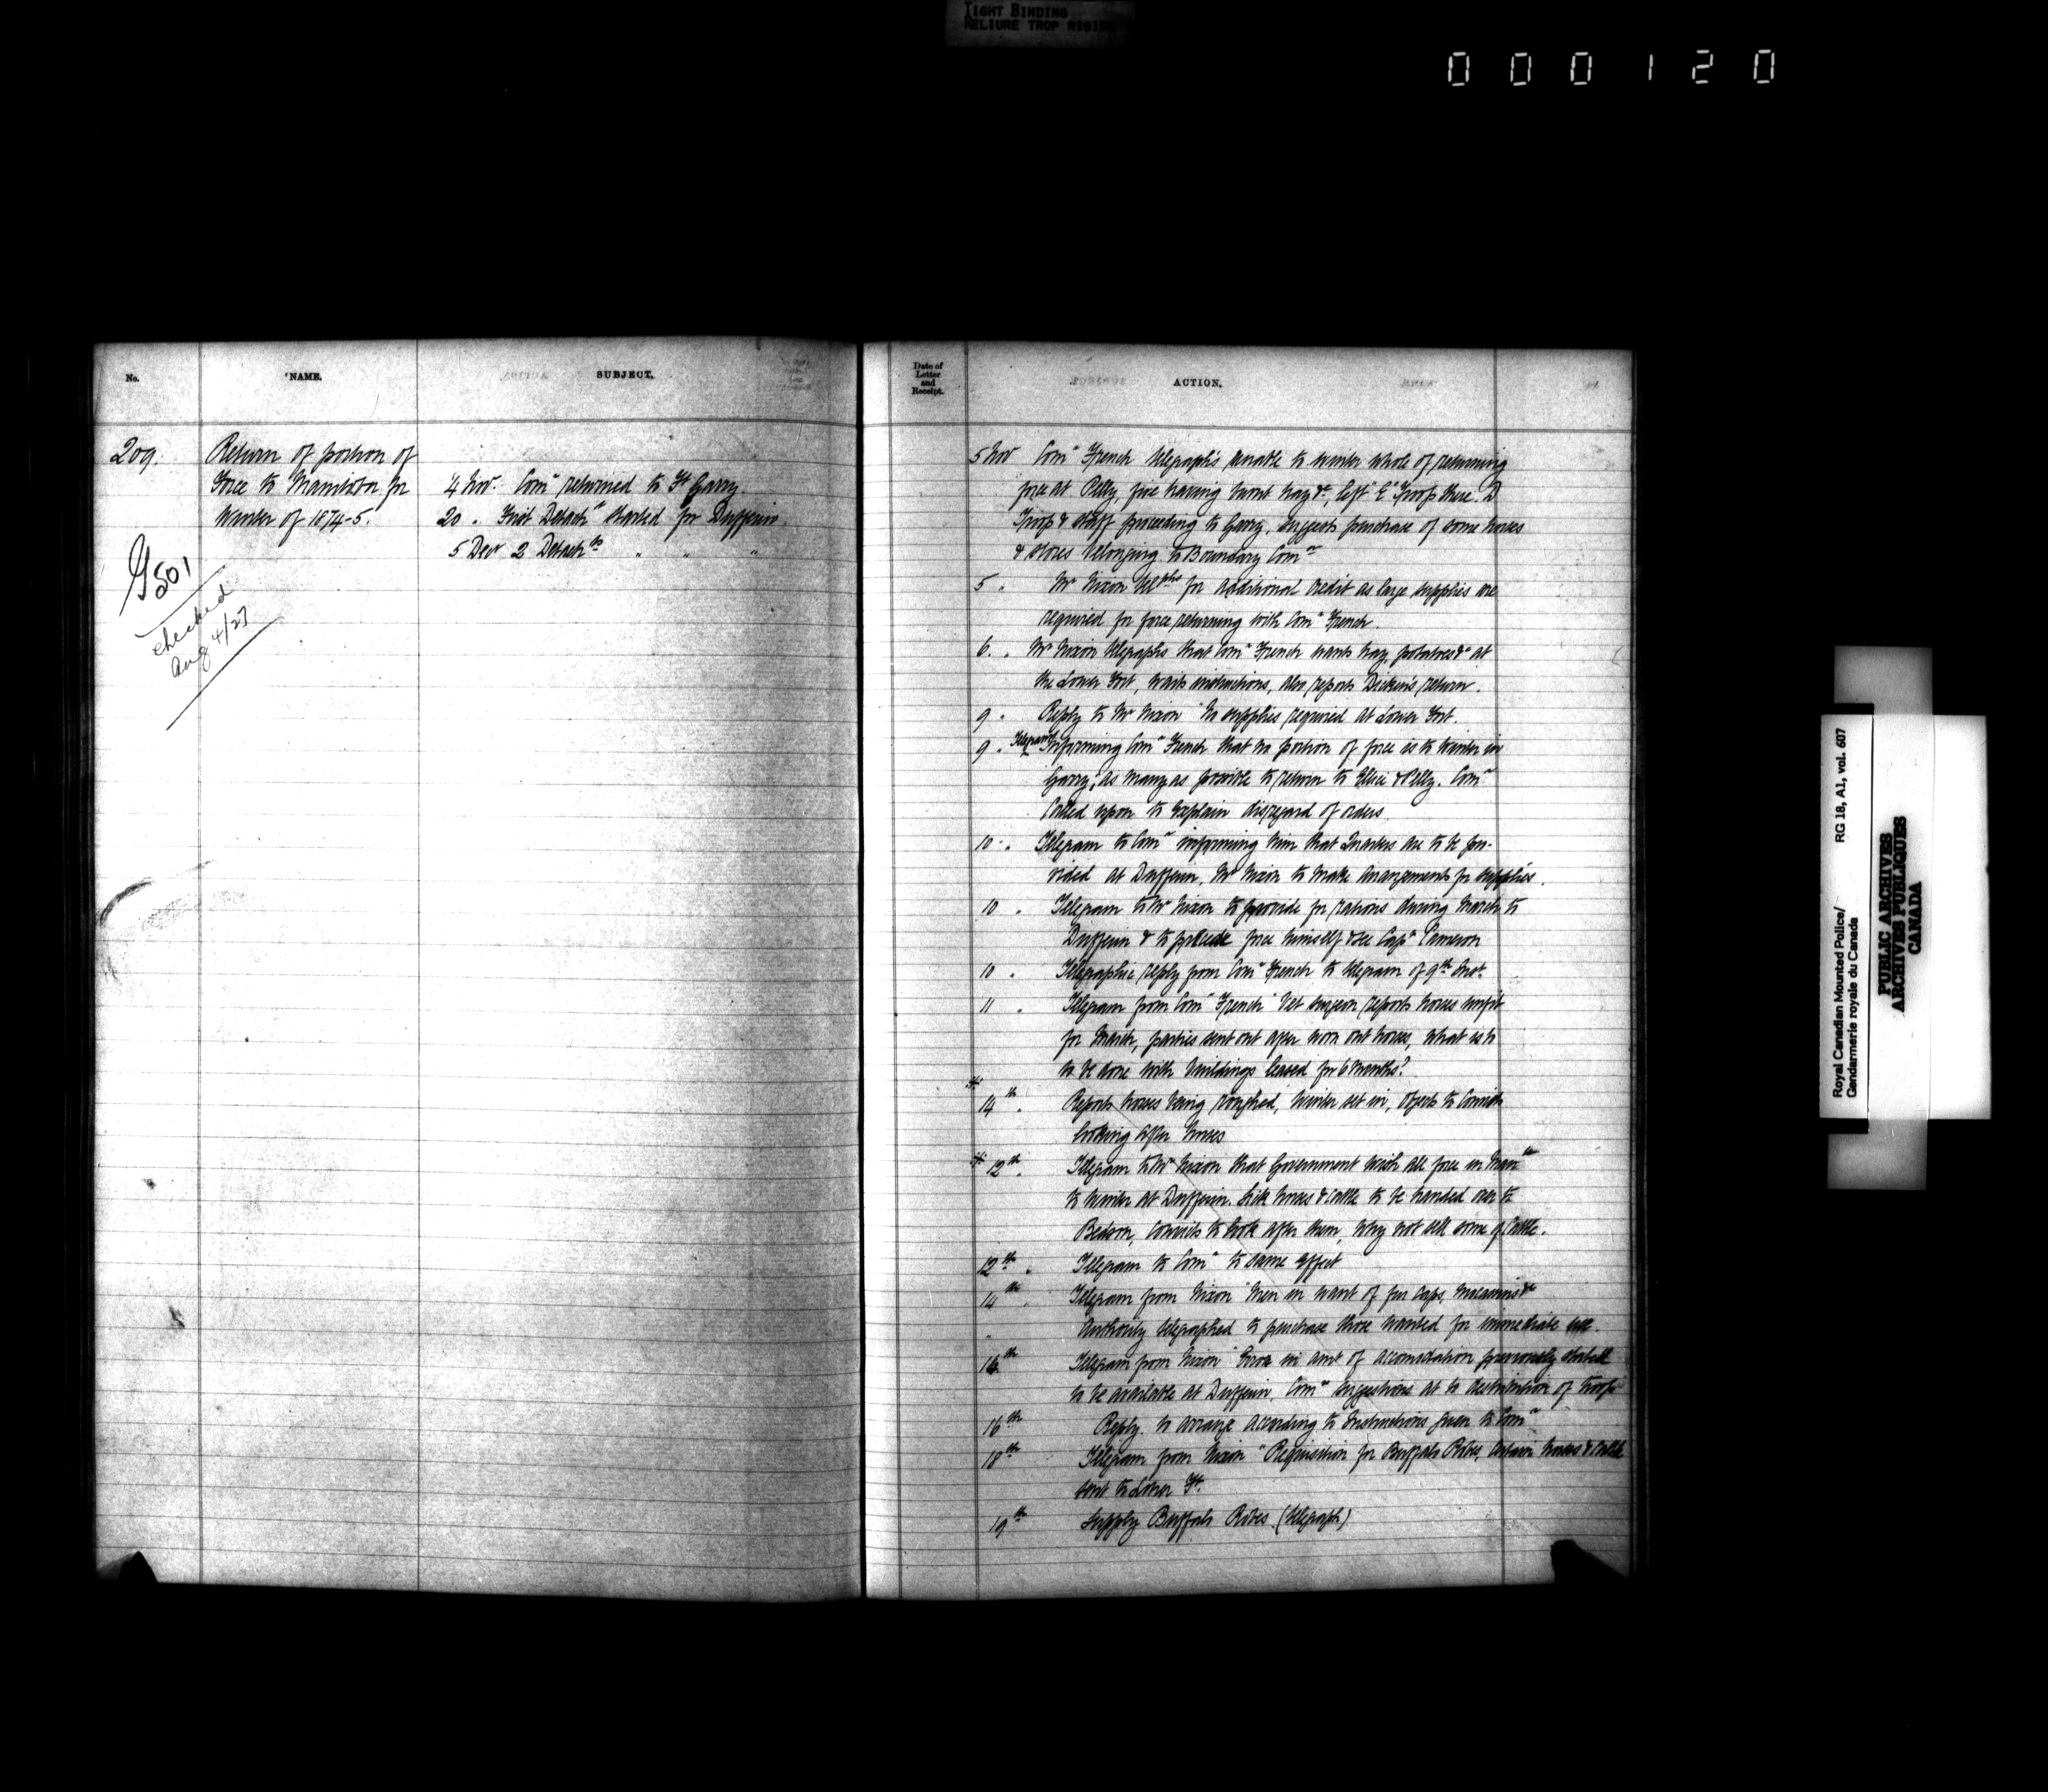 TIGHT BINDING
RELIURE TROP RIGIDE
000120
No.
NAME.
SUBJECT.
209.
Return of portion of
Force to Manitoba for
Winter of 1874-5.
G501
checked
Aug 4/27
4 Nov. Comr returned to Ft Garry
20 " First Detacht started for Dufferin
5 Decr 2 Detachts " " "
Date of
Letter
and
Receipt.
ACTION.
5 Nov Comr French telegraphs unable to winter whole of returning
force at Pelly, fire having burnt hay &c, left "E" Troop there. D
Troop & Staff proceeding to Garry, suggests purchase of some horses
& stores belonging to Boundary Comn
5 " Mr Nixon telphs for additional credit as large supplies are
required for force returning with Comr French.
6. " Mr Nixon telegraphs that Comr French wants hay, potatoes &c at
the Lower Fort, wants instructions, also reports Dicken's return.
9 " Reply to Mr Nixon "No supplies required at Lower Fort.
9 " Telegram Informing Comr French that no portion of force is to winter in
Garry, as many as possible to return to Ellice & Pelly. Comr
Called upon to explain disregard of orders
10 " Telegram to Comr informing him that Quarters are to be pro-
vided at Dufferin, Mr Nixon to make arrangements for supplies.
10 " Telegram to Mr Nixon to provide for rations during March to
Dufferin & to precede force himself & see Capt Cameron
10 " Telegraphic reply from Comr French to telegram of 9th Inst.
11 " Telegram from Comr French "Vet surgeon reports horses unfit
for March, parties sent out after worn out horses, what is to
to be done with buildings leased for 6 months?
14th " Reports horses being roughed, Winter set in, objects to Convicts
looking after horses
12th " Telegram to Mr Nixon that Government wish all force in Manba
to winter at Dufferin. Sick horses & cattle to be handed over to
Bedson, Convicts to look after them, Why not sell some of Cattle.
12th " Telegram to Comr to same effect
14th " Telegram from Nixon "Men in want of fur Caps, mocassins &c
Authority telegraphed to purchase those wanted for immediate use.
16th Telegram from Nixon "Error in amt of accomodation previously stated
to be available at Dufferin. Comr suggestions at to distribution of troops
16th Reply. to arrange according to Instructions given to Comr
18th Telegram from Nixon "Requisition for Buffalo Robes, certain horses & cattle
sent to Lower Ft.
19th Supply Buffalo Robes. (telegraph)
Royal Canadian Mounted Police/ RG 18, A1, vol. 607
Gendarmerie royale du Canada
PUBLIC ARCHIVES
ARCHIVES PUBLIQUES
CANADA